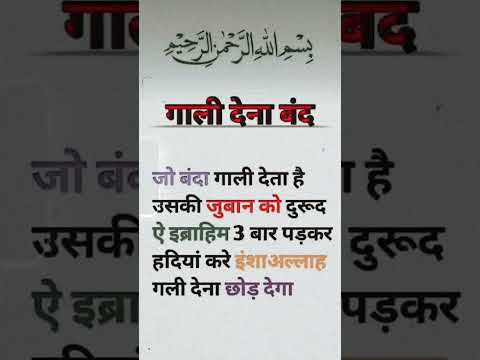 بِسْمِ اللهِ الرَّحْمٰنِ الرَّحِيْمِ
गाली देना बंद
जो बंदा गाली देता है
उसकी जुबान को दुरूद
ऐ इब्राहिम 3 बार पड़कर
हदियां करे इंशाअल्लाह
गली देना छोड़ देगा